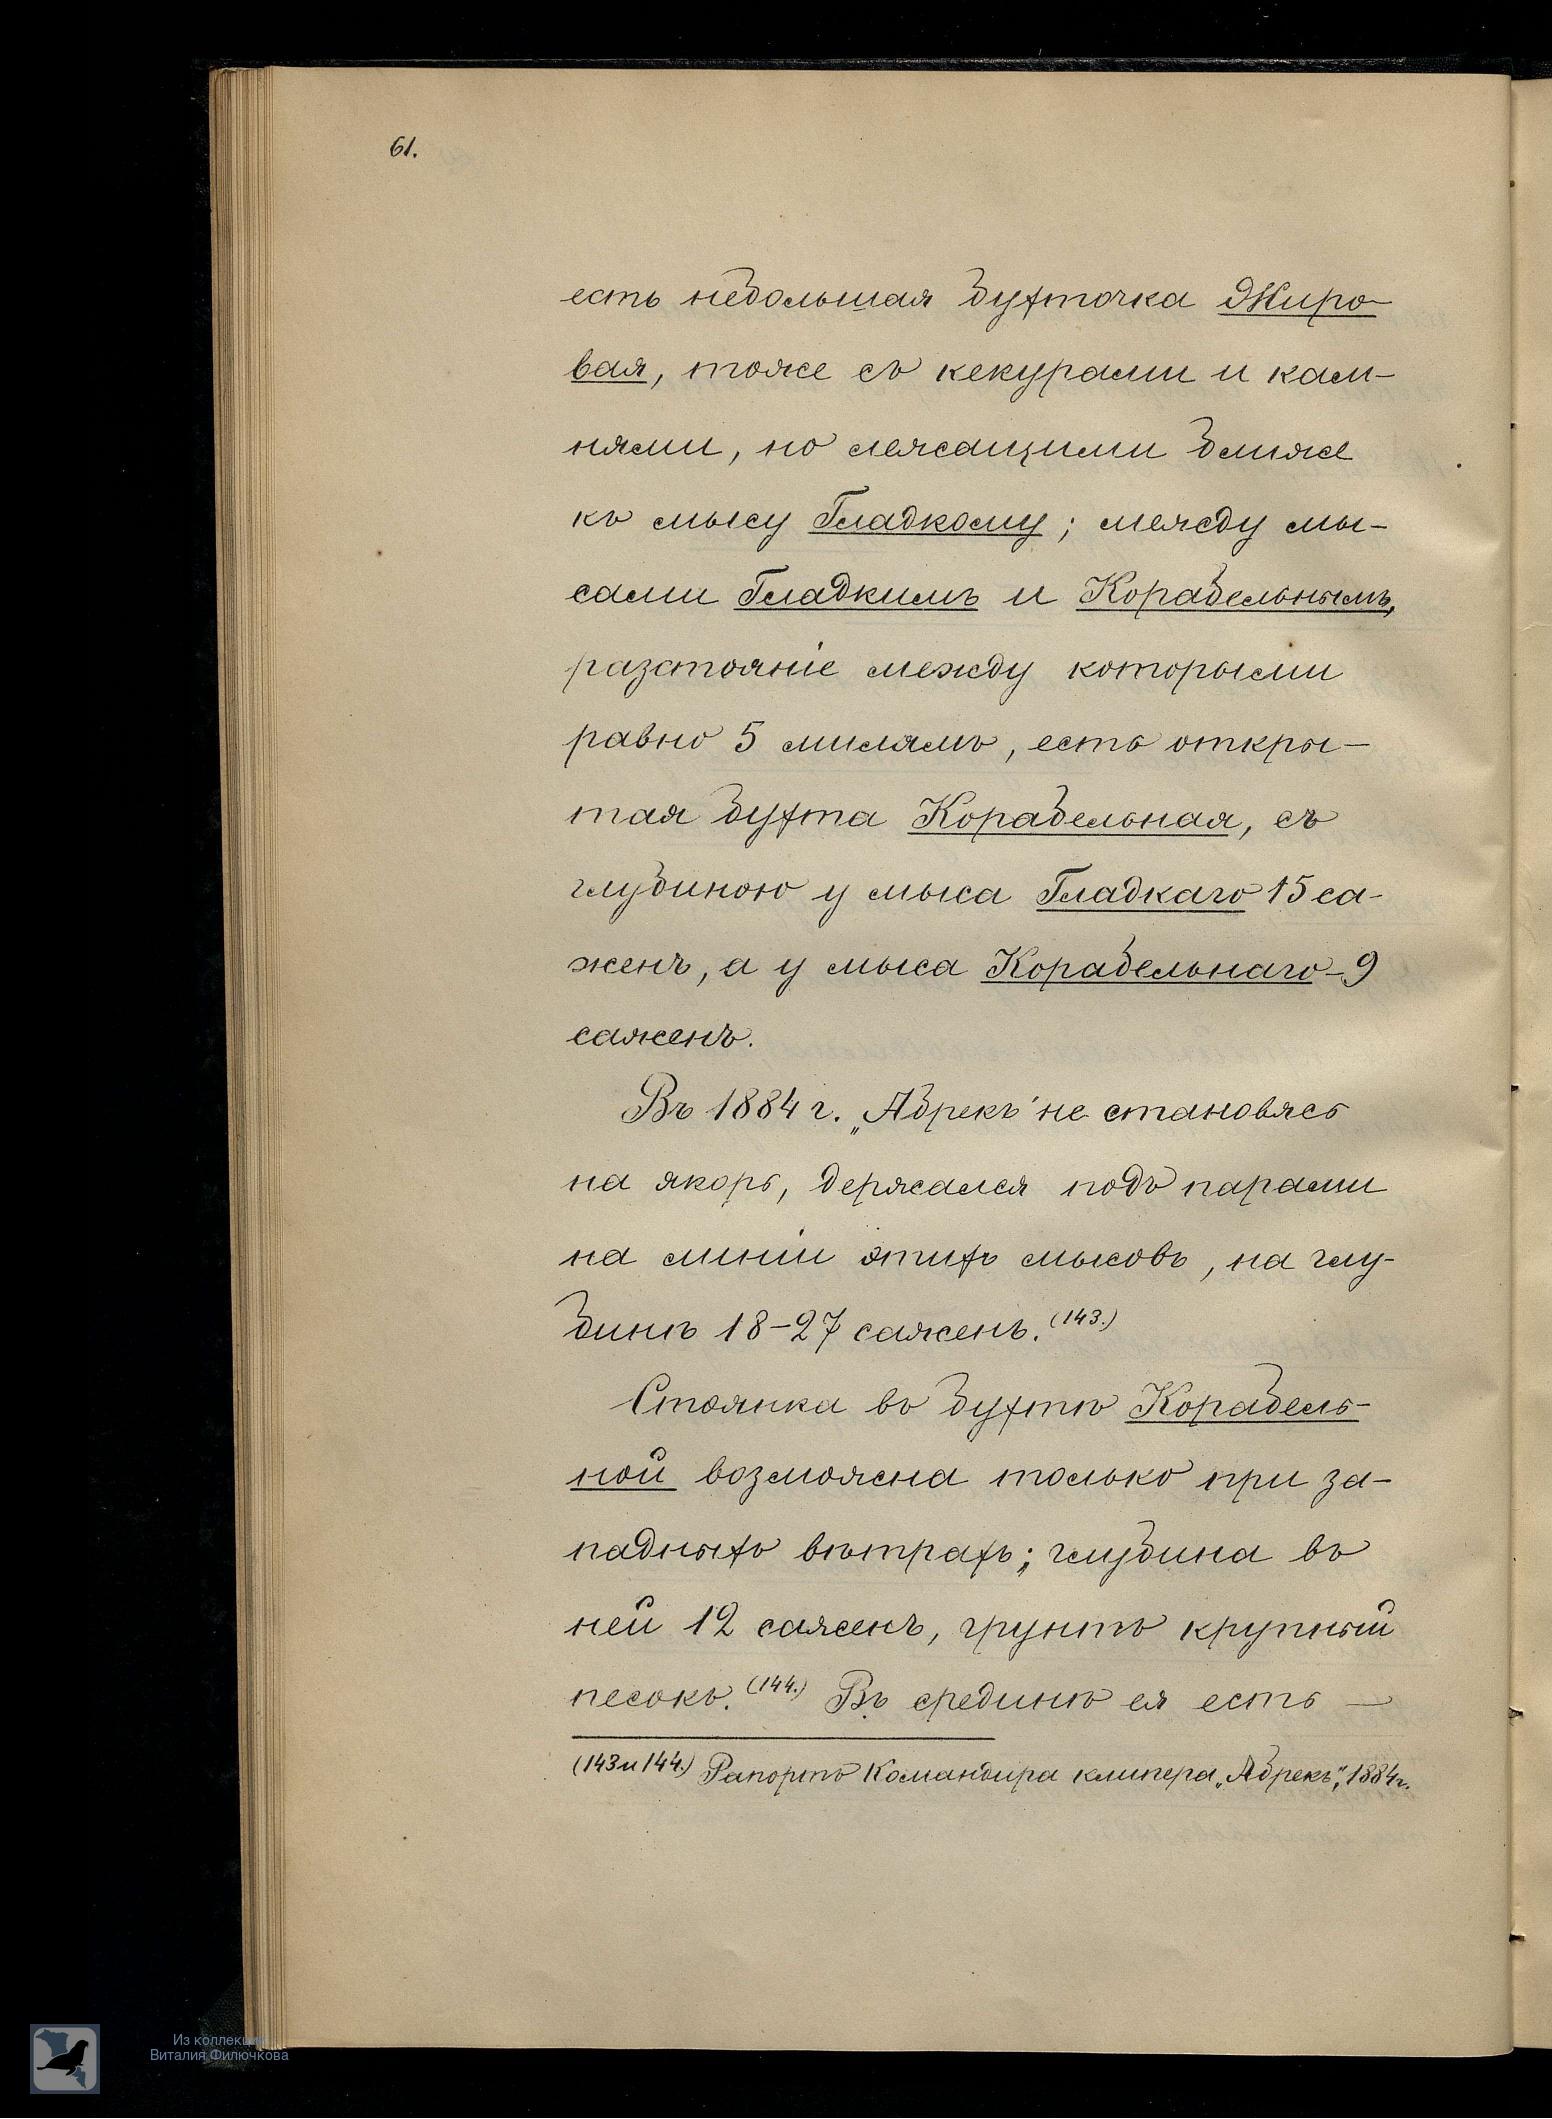 61.
есть небольшая бухточка Жиро-
вая, тоже съ кекурами и кам-
нями, но лежащими ближе
къ мысу Гладкому; между мы-
сами Гладкимъ и Корабельнымъ,
разстояніе между которыми
равно 5 милямъ, есть откры-
тая бухта Корабельная, съ
глубиною у мыса Гладкаго 15 са-
женъ, а у мыса Корабельнаго - 9
саженъ.
Въ 1884 г. „Абрекъ" не становясь
на якорь, держался подъ парами
на линіи этихъ мысовъ, на глу-
бинѣ 18-27 саженъ. (143.)
Стоянка въ бухтѣ Корабель-
ной возможна только при за-
падныхъ вѣтрахъ; глубина въ
ней 12 саженъ, грунтъ крупный
песокъ. (144.) Въ срединѣ ея есть —
(143 и 144.) Рапортъ Командира клипера „Абрекъ", 1884 г.
Из коллекции
Виталия Филючкова